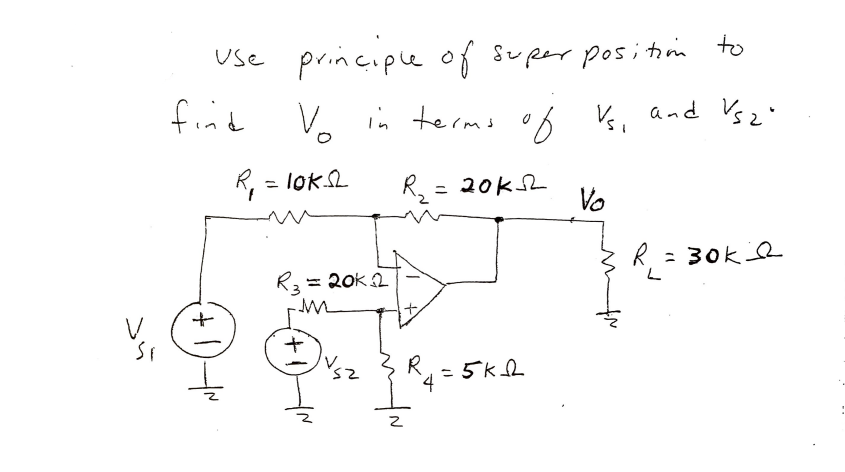 Use principle of superposition to
find Vo in terms of Vs1 and Vs2.
R1 = 10KΩ
R2 = 20KΩ
Vo
RL = 30KΩ
R3 = 20KΩ
−
+
Vs1
+
−
+
−
Vs2
R4 = 5KΩ